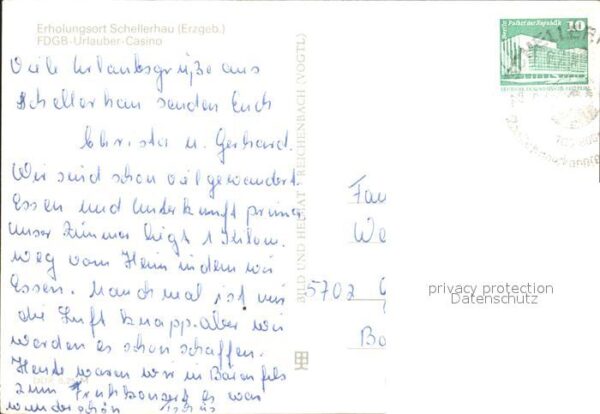 Erholungsort Schellerhau (Erzgeb.)
FDGB-Urlauber-Casino
Viele Urlaubsgrüße aus
Schellerhau senden Euch
Christa u. Gerhard.
Wir sind schon viel gewandert.
Essen und Unterkunft prima
unser Zimmer liegt 1 Kilom.
weg vom Heim indem wir
Essen. Manchmal ist mir
die Luft knapp. Aber wir
werden es schon schaffen.
Heute waren wir in Bärenfels
zum Frühkonzert es war
wunderschön
BILD UND HEIMAT REICHENBACH (VOGTL)
Palast der Republik 10
Berlin
Fam
We
5702
Ba
privacy protection
Datenschutz